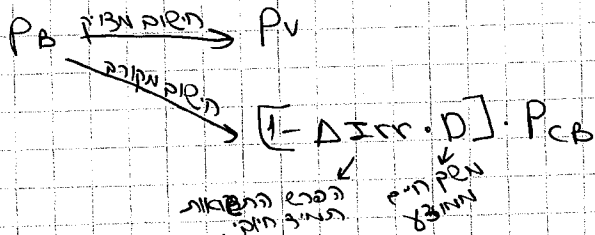 P_B חישוב מדויק PV
חישוב מקורב
[1 - ΔIrr · D] · P_CB
הפרש התשואות משך חיים
תמיד חיובי ממוצע